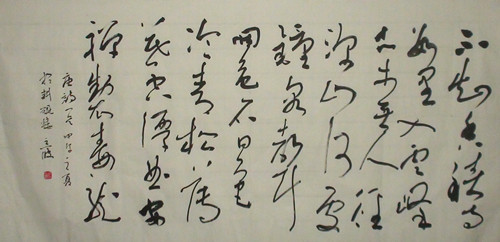 不知香積寺
數里入雲峰
古木無人徑
深山何處
鐘泉聲
咽危石日色
冷青松薄
暮空潭曲安
禪制毒龍
唐詩一首